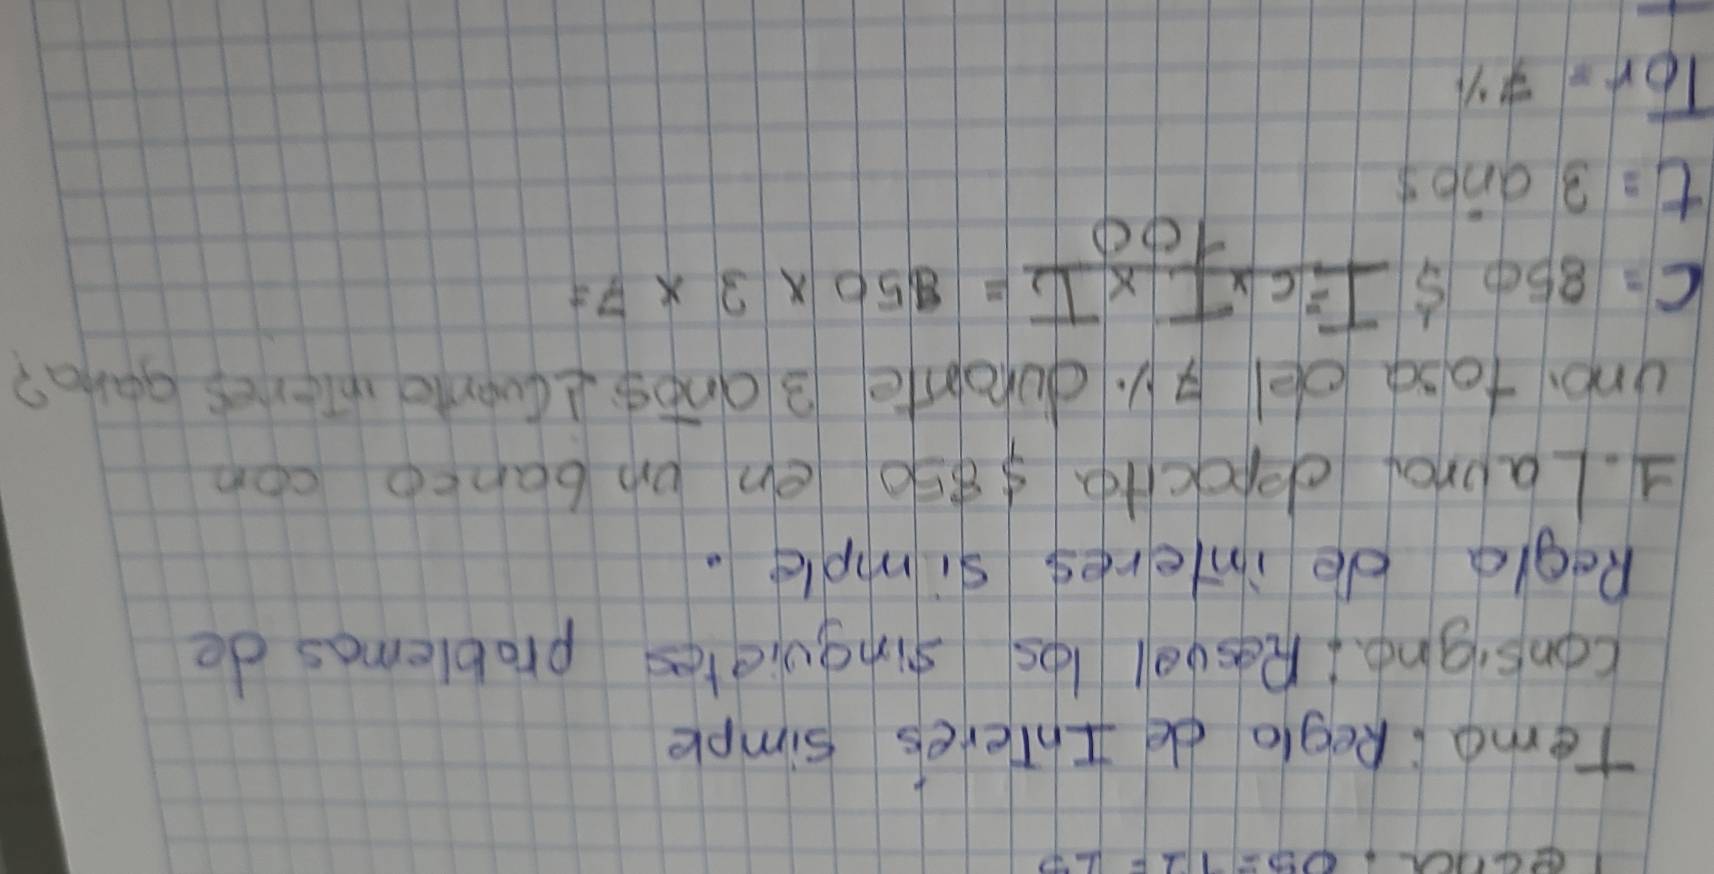 Fecha: 05-12-25
Tema: Regla de Interés simple
Consigna: Resuel los singuietes problemas de
Regla de interes simple.
1. Laura depocita $850 en un banco con
una tasa del 7% durante 3 años ¿Cuánto interes gana?
C= 850 $ I= C x T x I = 850 x 3 x 7=
100
t= 3 años
Tor= 7%